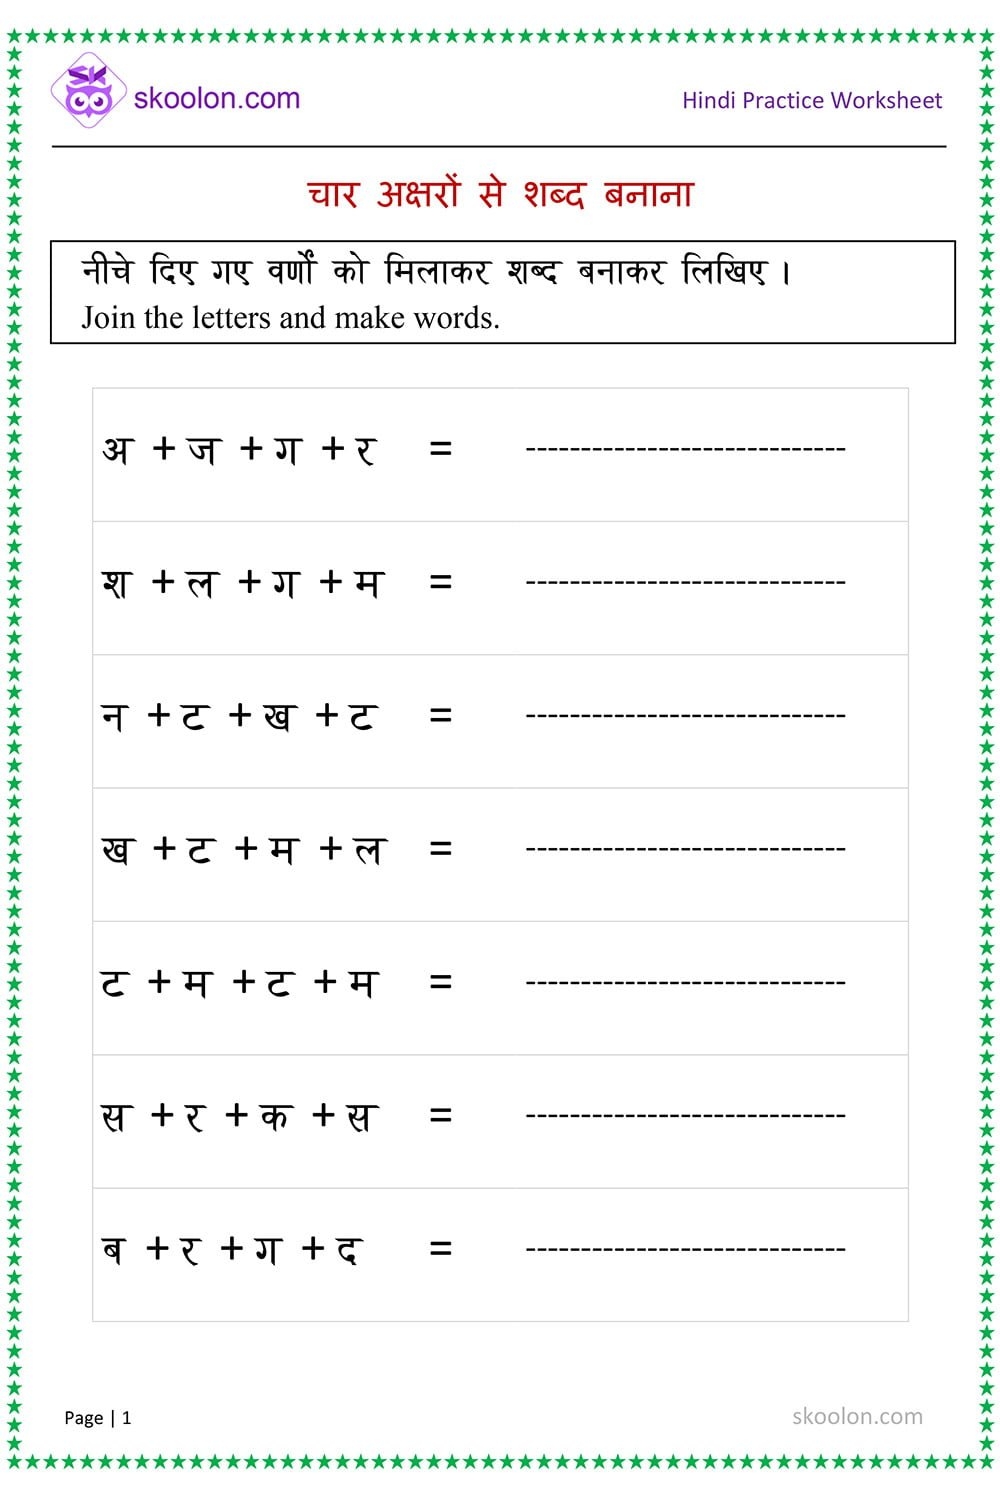 SK
skoolon.com
Hindi Practice Worksheet
चार अक्षरों से शब्द बनाना
नीचे दिए गए वर्णों को मिलाकर शब्द बनाकर लिखिए ।
Join the letters and make words.
अ + ज + ग + र = -----------------------------
श + ल + ग + म = -----------------------------
न + ट + ख + ट = -----------------------------
ख + ट + म + ल = -----------------------------
ट + म + ट + म = -----------------------------
स + र + क + स = -----------------------------
ब + र + ग + द = -----------------------------
Page | 1
skoolon.com